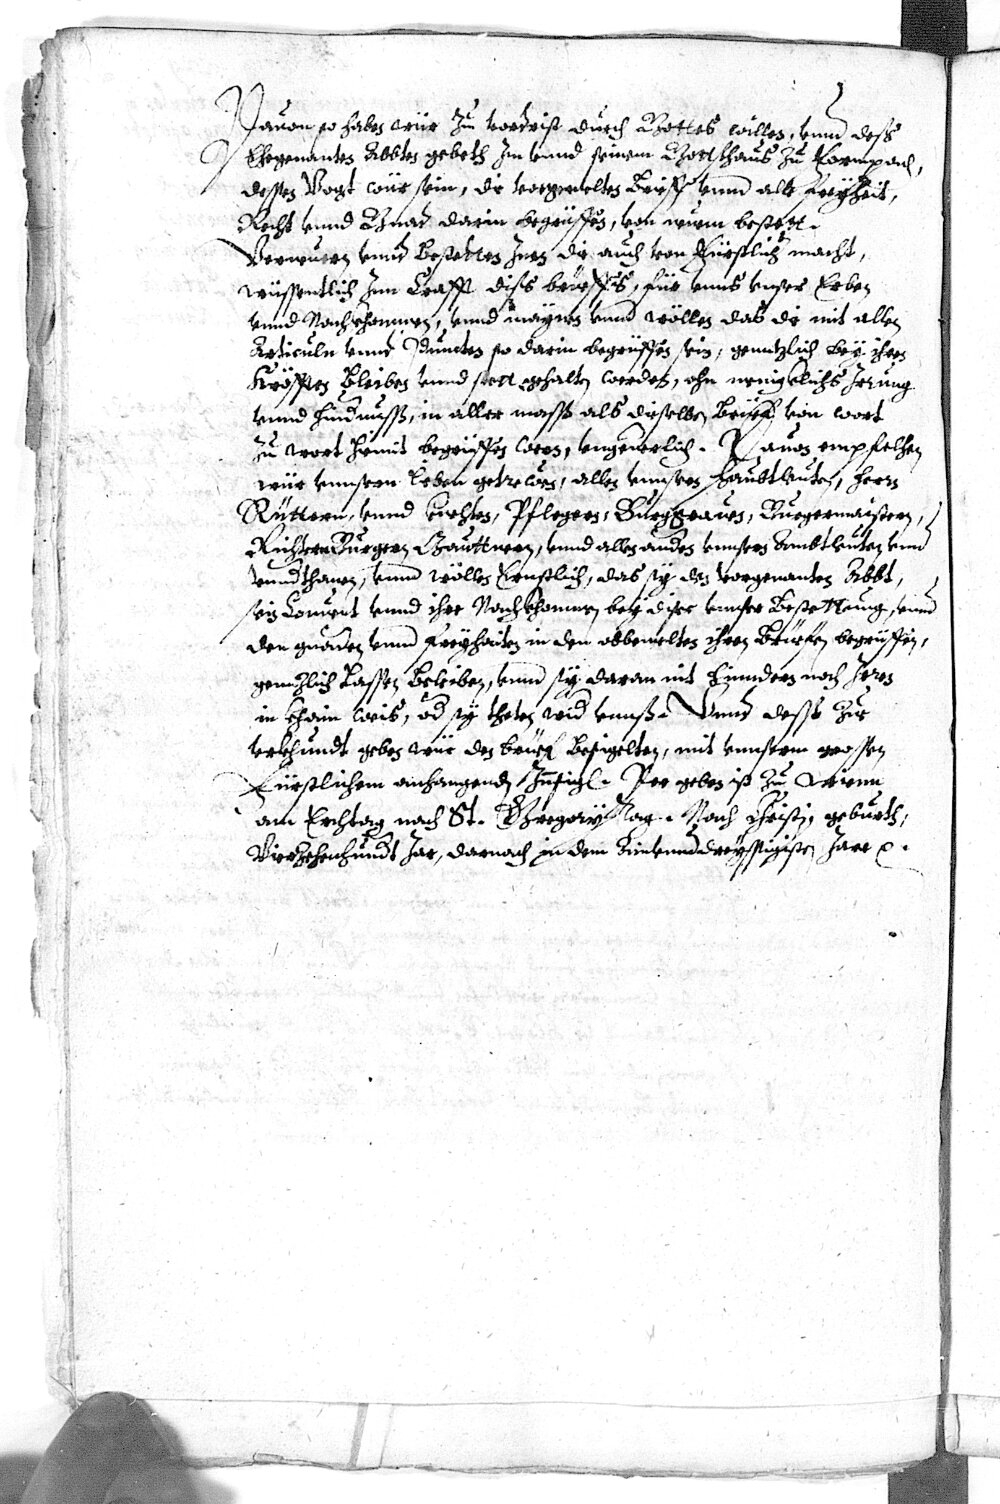 Dauon so haben wür zu vordrist durch Gottes willen, vnnd deß
Ehegenanten Abbten gebeth Im vnnd seinem Gottshaus zu Formpach,
dessen Vogt wür sein, die vorgemelten Brieff vnnd alle Freyheit,
Recht vnnd Gnad darin begriffen, von neuem bestett.
Verneuern vnnd bestetten Inen die auch von Fürstlich macht,
wüssentlich Inn Crafft diss brieffs, für vnns vnser Erben
vnnd Nachkhommen, vnnd maynen vnnd wöllen das die mit allen
Articuln vnnd Puncten so darin begriffen sein, genntzlich bey ihren
Kröfften bleiben vnnd stett gehalten werden, ohn menigklichs Irrung
vnnd hindnuß, in aller mass als dieselben Brieff von wort
zu wort hierinn begriffen weren, vngeuerlich. Dauon empfelhen
wür vnnsern lieben getrewen, allen vnnsern Haubtleuten, Herrn
Rüttern, vnnd knechten, Pflegern, Burggrauen, Burgermaistern,
Richtern Burgern Mauttnern, vnnd allen andern vnnsern Ambtleuten vnd
vnndthanen, vnnd wöllen Ernstlich, das sy den vorgenanten Abbt,
sein Conuent vnnd ihre Nachkhommen bey diser vnnser Bestettung, vnnd
den gnaden vnnd Freyhaiten in den obbemelten ihren Brieffen begriffen,
genntzlich lassen beleiben, vnnd sy daran nit hinndern noch Irren
in khain weis, od sy theten wid vnnß. Vnnd dess zur
vrkhundt geben wür den brieff besigelten, mit vnnserm grossen
Fürstlichem anhangenden Innsigl. Der geben ist zu Wienn
am Erchtag nach St. Gregory Tag. Nach Christi, geburth,
Vierzehenhundt Jar, darnach in dem Ainvnnddreyssigisten Jare.